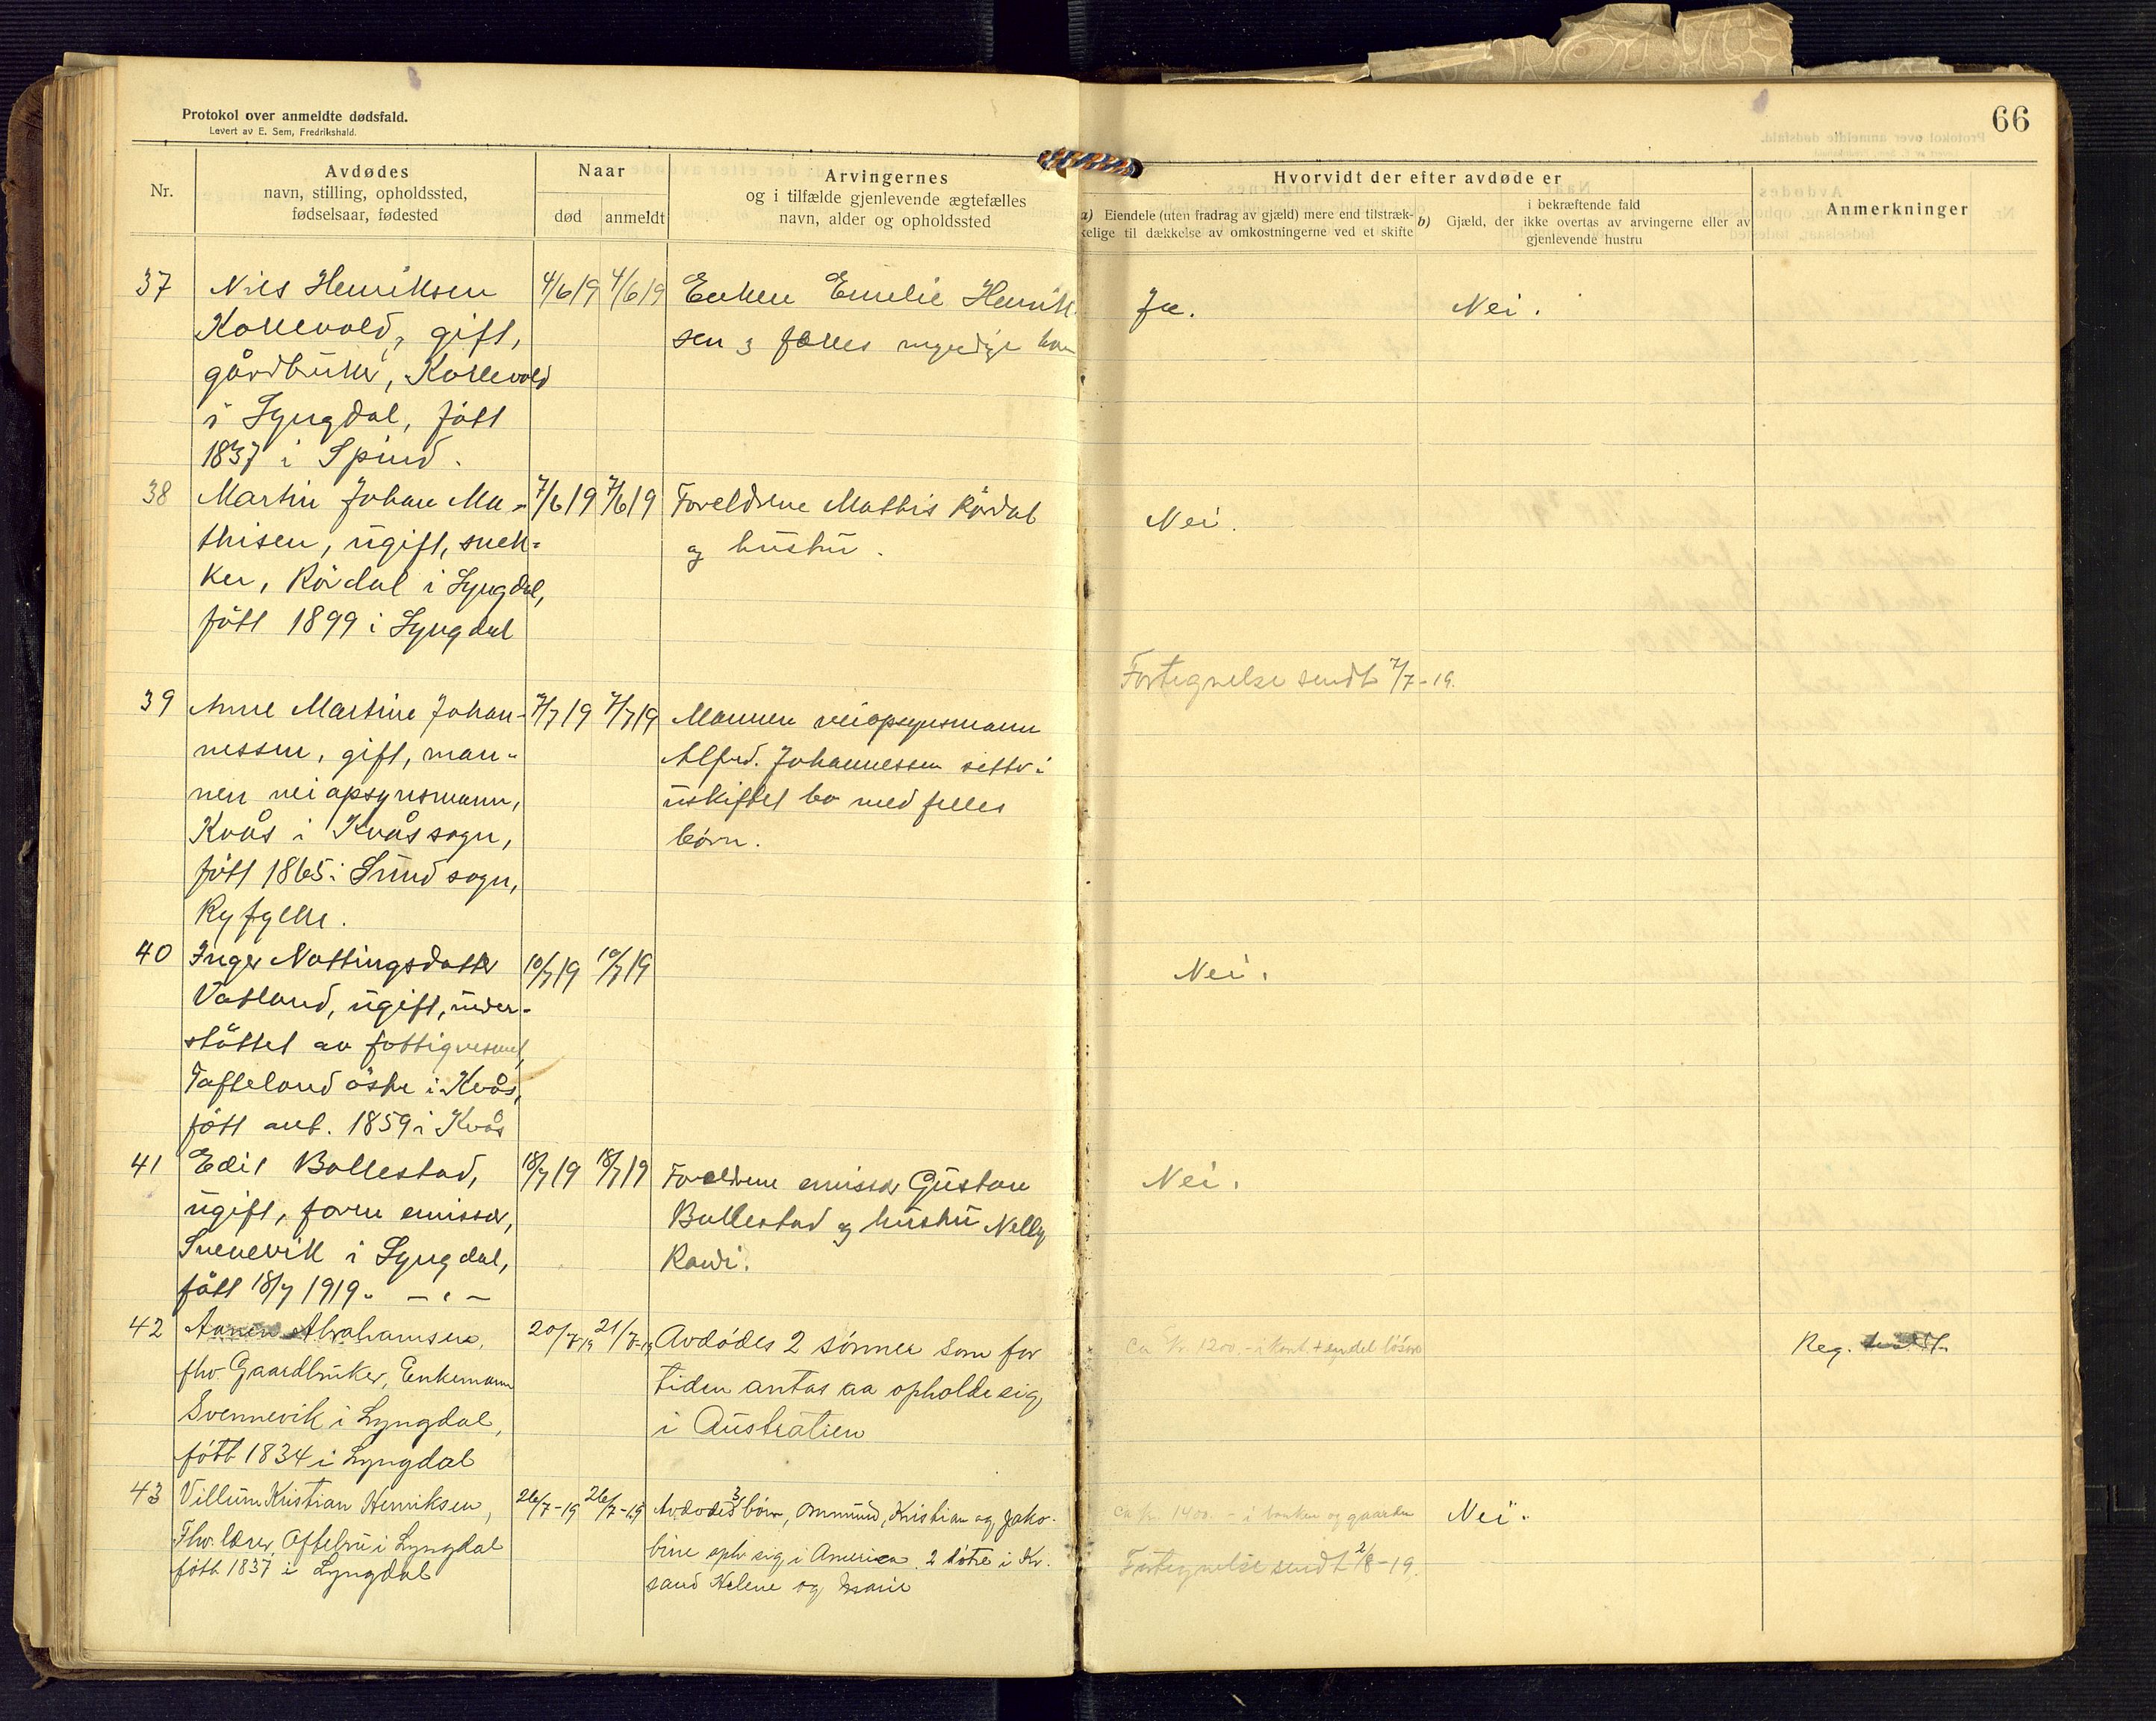 Protokol over anmeldte dødsfald.
Levert av E. Sem, Fredrikshald.
66
Nr.
Avdødes
navn, stilling, opholdssted,
fødselsaar, fødested
Naar
død anmeldt
Arvingernes
og i tilfælde gjenlevende ægtefælles
navn, alder og opholdssted
Hvorvidt der efter avdøde er
a) Eiendele (uten fradrag av gjæld) mere end tilstræk-
kelige til dækkelse av omkostningerne ved et skifte
i bekræftende fald
b) Gjæld, der ikke overtas av arvingerne eller av
gjenlevende hustru
Anmerkninger
37 Nils Henriksen
Kollevold, gift,
gårdbruker, Kollevold
i Lyngdal, født
1837 i Spind.
4/6 19 4/6 19
Enken Emelie Henrik-
sen 3 felles myndige
Ja. Nei.
38 Martin Johan Ma-
thisen, ugift, snek-
ker, Rördal i Lyngdal,
fött 1899 i Lyngdal
7/6 19 7/6 19
Foreldrene Mathis Rördal
og hustru.
Nei.
Fortegnelse sendt 7/7-19.
39 Anne Martine Johan-
nessen, gift, man-
nen veiopsynsmann,
Kvås i Kvås sogn,
fött 1865 i Sund sogn,
Ryfylke.
7/7 19 7/7 19
Mannen veiopsynsmann
Alfred. Johannessen sitter i
uskiftet bo med felles
börn.
40 Inger Nottingsdatter
Vatland, ugift, under-
støttet av fattigvesenet,
Tafteland östre i Kvås,
fött ant. 1859 i Kvås
10/7 19 10/7 19
Nei.
41 Edil Bollestad,
ugift, foren emissær,
Svenevik i Lyngdal,
fött 18/7 1919. - " -
18/7 19 18/7 19
Foreldrene emissær Gustav
Bollestad og hustru Nelly
Nei.
42 Abrahamsen,
fhv. Gaardbruker, Enkemann
Svennevik i Lyngdal,
fött 1834 i Lyngdal
20/7-19 21/7-19
Avdødes 2 sønner som for
tiden antas aa opholde sig
i Australien
ca kr. 1200.- i kont. + endel løsøre
Reg.
43 Villum Kristian Henriksen,
Fhv. lærer, Oftebru i Lyngdal
fött 1837 i Lyngdal
26/7-19 26/7-19
Avdødes 3 börn, Ommund, Kristian og Jako-
bine oph. sig i America. 2 døtre i Kr.
sand Helene og Marie
ca kr. 1400.- i banken og gaarden
Nei.
Fortegnelse sendt 2/8-19.